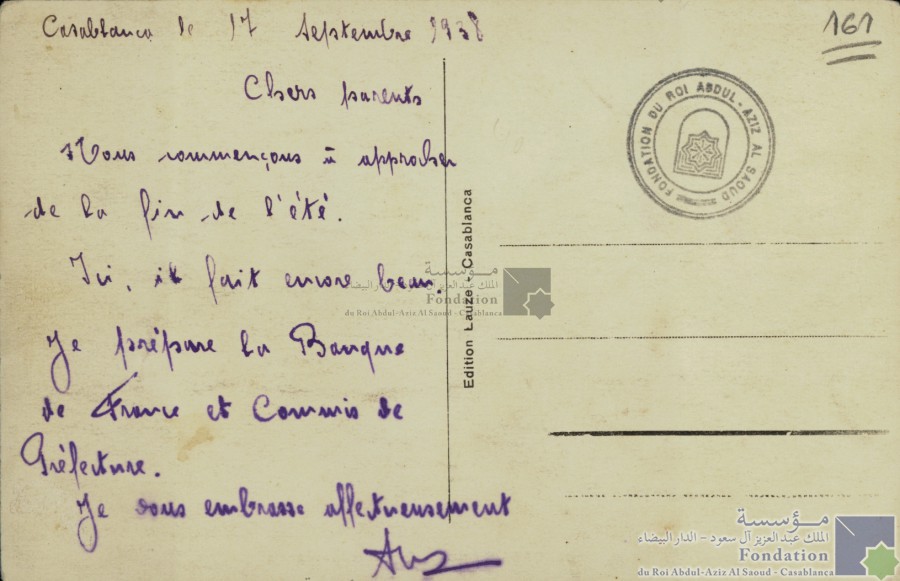 Casablanca le 17 Septembre 1938
161
Chers parents
Nous commençons à approcher
de la fin de l'été.
Ici, il fait encore beau.
Je prépare la Banque
de France et Commis de
Préfecture.
Je vous embrasse affectueusement
Edition Lauzet - Casablanca
FONDATION DU ROI ABDUL-AZIZ AL SAOUD
مؤسسة
الملك عبد العزيز آل سعود - الدار البيضاء
Fondation
du Roi Abdul-Aziz Al Saoud - Casablanca
مؤسسة
الملك عبد العزيز آل سعود - الدار البيضاء
Fondation
du Roi Abdul-Aziz Al Saoud - Casablanca